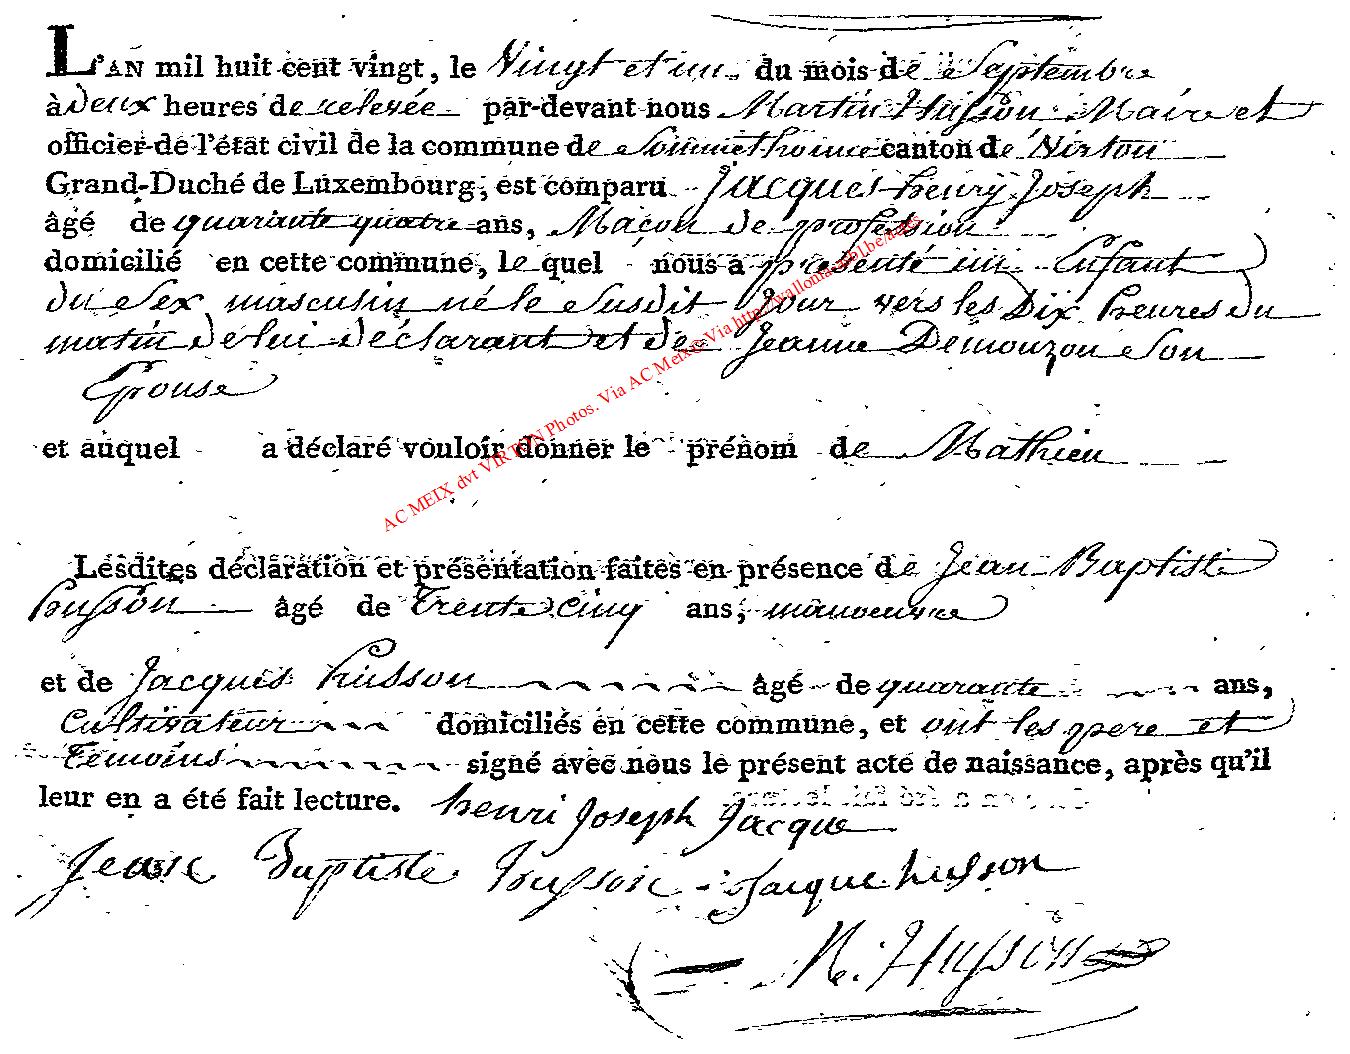 L'AN mil huit cent vingt, le Vingt et un du mois de Septembre
à deux heures de relevée par-devant nous Martin Husson Maire et
officier de l'état civil de la commune de Sommethonne canton de Virton
Grand-Duché de Luxembourg, est comparu Jacques henry Joseph
âgé de quarante quatre ans, Maçon de profession
domicilié en cette commune, le quel nous a présenté un Enfant
du Sex masculin né le Susdit Jour vers les Dix heures du
matin de lui déclarant et de Jeanne Demouzon Son
Epouse
et auquel a déclaré vouloir donner le prénom de Mathieu
Lesdites déclaration et présentation faites en présence de Jean Baptiste
husson âgé de Trente cinq ans, manoeuvre
et de Jacques husson âgé de quarante ans,
Cultivateur domiciliés en cette commune, et ont les pere et
Temoins signé avec nous le présent acte de naissance, après qu'il
leur en a été fait lecture. henri Joseph Jacque
Jean Baptiste husson Jacque husson
M. Husson
AC MEIX dvt VIRTON Photos. Via AC Meix© Via